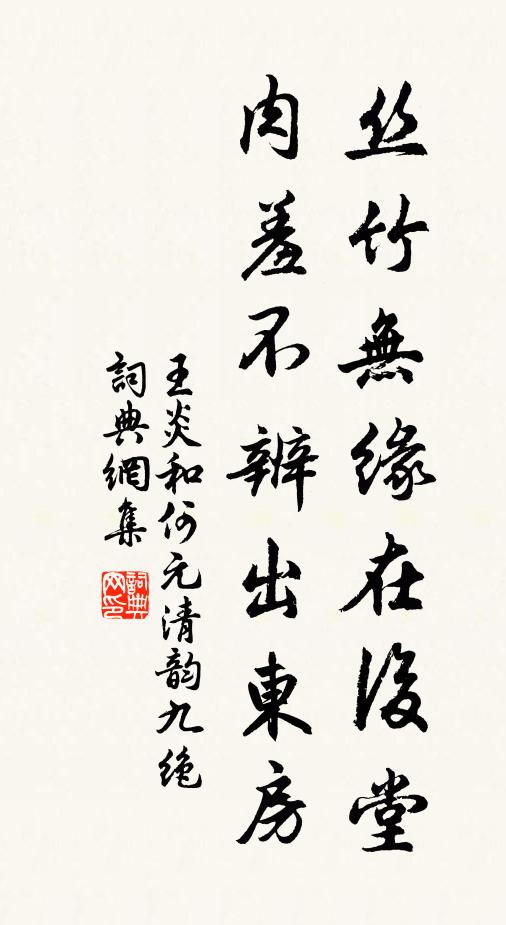 丝竹無緣在後堂
肉羞不辨出東房
王炎和何元清韵九绝
詞典網集
詞典网印